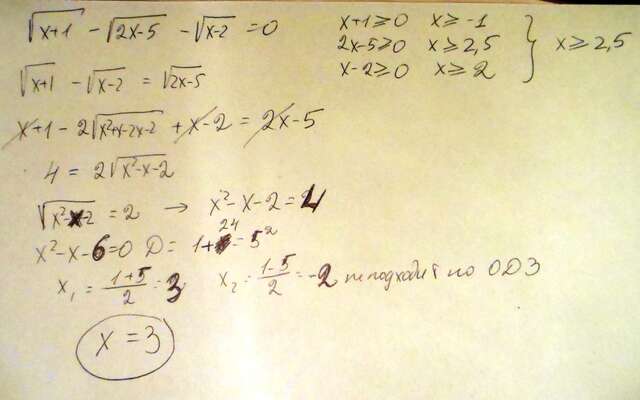 √x+1 - √2x-5 - √x-2 = 0
x+1≥0 x≥-1
2x-5≥0 x≥2,5
x-2≥0 x≥2
} x≥2,5
√x+1 - √x-2 = √2x-5
x+1-2√x²+x-2x-2 + x-2 = 2x-5
4 = 2√x²-x-2
√x²-x-2 = 2 → x²-x-2=4
x²-x-6=0 D= 1+24=5²
x₁ = 1+5/2 = 3 x₂ = 1-5/2 = -2 не подходит по ОДЗ
x = 3